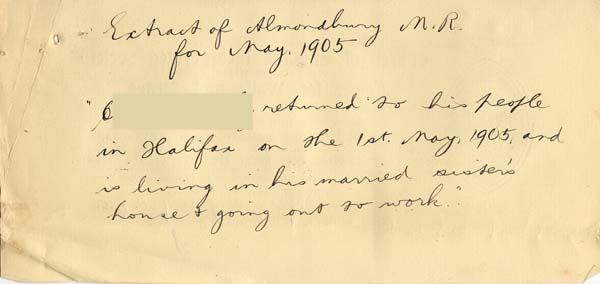 Extract of Almondbury M.R.
for May, 1905
" returned to his people
in Halifax on the 1st. May, 1905, and
is living in his married sister's
house & going out to work."